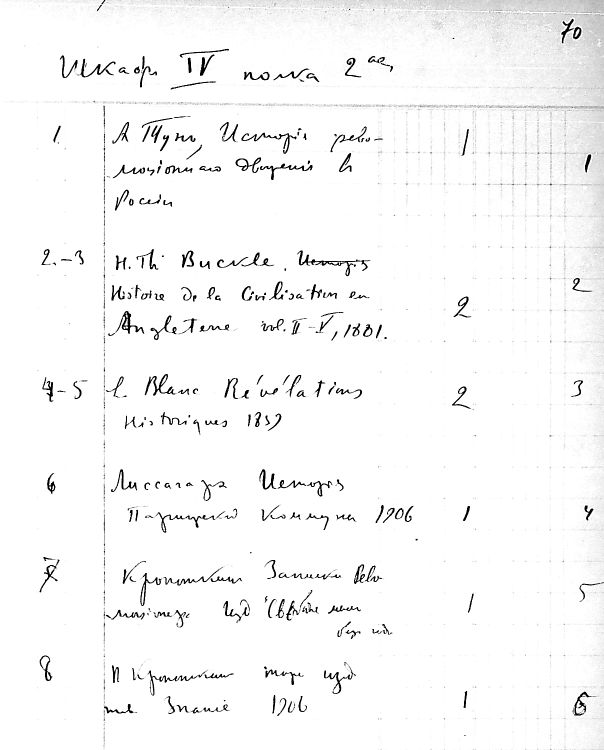 70
Шкафъ IV полка 2ая
1 А Тунъ, Исторія рево- 1 1
люціоннаго движенія въ
Россіи
2.-3 H. Th Buckle. Исторія
Histoire de la Civilisation en 2 2
Angleterre vol. II-V, 1881.
4-5 L. Blanc Révélations 2 3
Historiques 1859
6 Лиссагарэ Исторія
Парижской Коммуны 1906 1 4
7 Кропоткинъ Записки Рево 5
люціонера Изд 1
безъ года
8 П Кропоткинъ тоже изд
Знаніе 1906 1 6